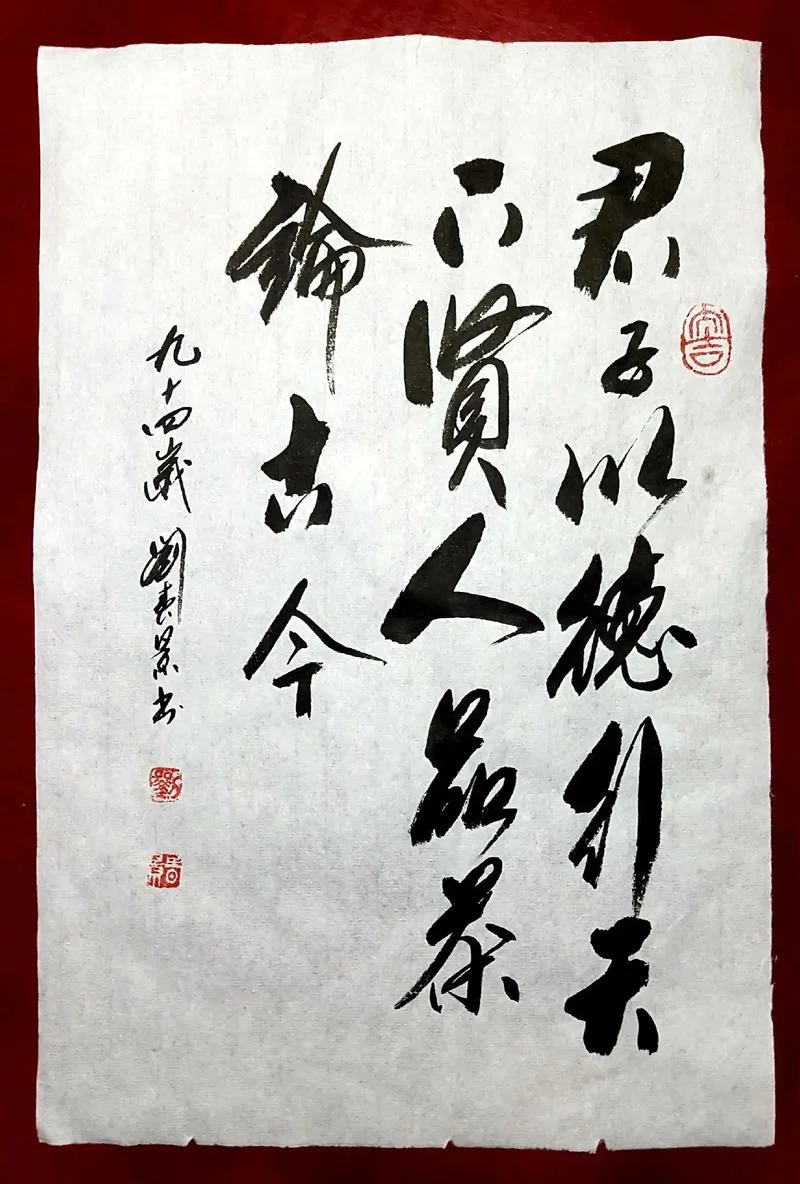 君子以德行天
下賢人品茶
論古今
九十四歲 劉春景书
劉